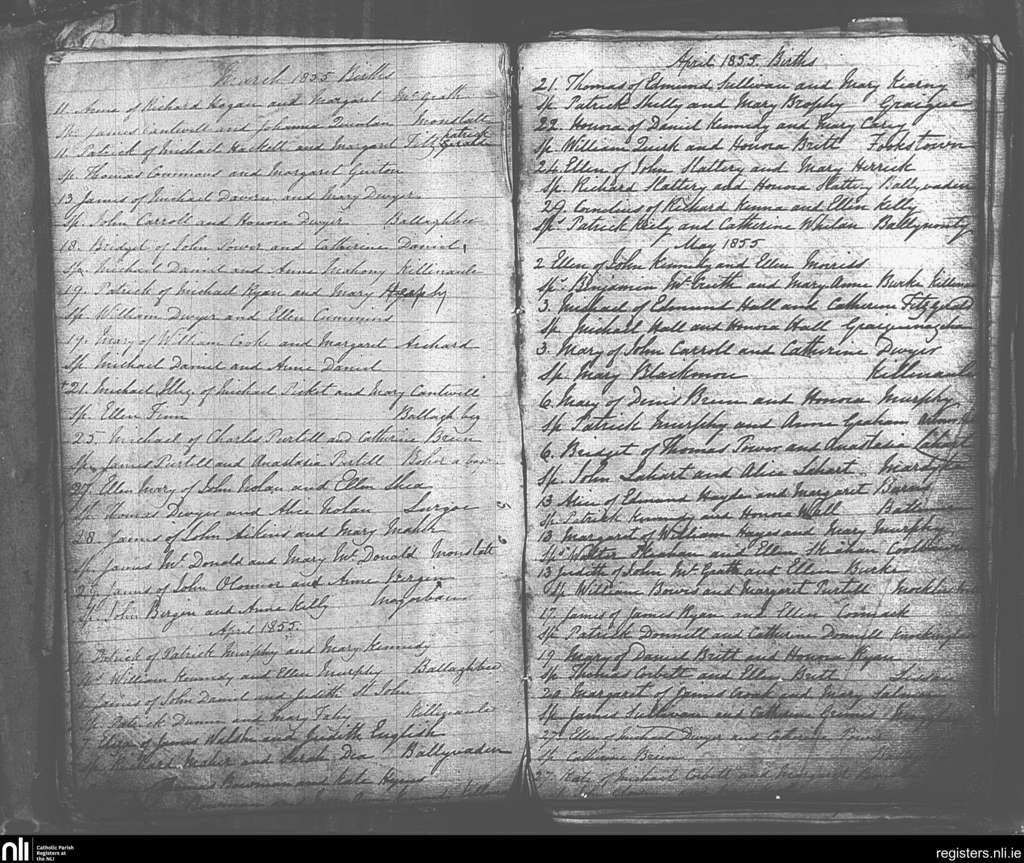 March 1855 Births
11. Anne of Richard Hogan and Margaret McGrath
Sp. James Cantwell and Johanna Quinlan Monslatt
11. Patrick of Michael Hackett and Margaret Fitz Patrick Gerald
Sp. Thomas Commons and Margaret Guiton
13. James of Michael Davern and Mary Dwyer
Sp. John Carroll and Honora Dwyer Ballaghboe
18. Bridget of John Power and Catherine Daniel
Sp. Michael Daniel and Anne Meahony Killinaule
19. Patrick of Michael Ryan and Mary Heaphy
Sp. William Dwyer and Ellen Cummins
19. Mary of William Cooke and Margaret Archard
Sp. Michael Daniel and Anne Daniel
21. Michael Illeg. of Michael Picket and Mary Cantwell
Sp. Ellen Finn Ballagh beg
25. Michael of Charles Purtill and Catherine Brien
Sp. James Purtill and Anastasia Purtill
27. Ellen Mary of John Nolan and Ellen Shea
Sp. Thomas Dwyer and Alice Nolan Lurgoe
28. James of John Aikins and Mary Maher
Sp. James McDonald and Mary McDonald Monslatt
29. James of John OConnor and Anne Bergin
Sp. John Bergin and Anne Kelly Magorban
April 1855.
Patrick of Patrick Murphy and Mary Kennedy
Sp. William Kennedy and Ellen Murphy Ballaghboe
James of John Daniel and Judith St John
Sp. Patrick Dunne and Mary Fahy Killinaule
Eliza of James Walsh and Judith English
Sp. Richard Maher and Sarah Dea Ballyvaden
April 1855. Births
21. Thomas of Edmund Sullivan and Mary Kearny
Sp. Patrick Skelly and Mary Brophy Graigue
22. Honora of Daniel Kennedy and Mary Carey
Sp. William Quirk and Honora Britt Fookstown
24. Ellen of John Slattery and Mary Herrick
Sp. Richard Slattery and Honora Slattery Ballyvaden
29. Cornelius of Richard Kenna and Ellen Kelly
Sp. Patrick Kiely and Catherine Whelan Ballynonty
May 1855
2. Ellen of John Kennedy and Ellen Morriss
Sp. Benjamin McCreith and Mary Anne Burke
3. Michael of Edmund Hall and Catherine Fitzgerald
Sp. Michael Hall and Honora Hall
3. Mary of John Carroll and Catherine Dwyer
Sp. Mary Blackmore Killinaule
6. Mary of Denis Brien and Honora Murphy
Sp. Patrick Murphy and Anne Graham
6. Bridget of Thomas Power and Anastasia Lahart
Sp. John Lahart and Alice Lahart Mardyke
13. Alice of Edmund Hayden and Margaret
Sp. Patrick Kennedy and Honora Wall
13. Margaret of William Hayes and Mary Murphy
Sps. Walter Meahan and Ellen Meahan
13. Judith of John McGrath and Ellen Burke
Sp. William Bowers and Margaret Purtill
17. James of James Ryan and Ellen Cormack
Sp. Patrick Donnell and Catherine Donnell
19. Mary of Daniel Britt and Honora Ryan
Sp. Thomas Corbett and Ellen Britt
20. Margaret of James Crook and Mary
Sp. James Sullivan and Catherine Grimes
27. Ellen of Michael Dwyer and Catherine
Sp. Catherine Brien
27. Mary of Michael Corbett and Margaret
nli
Catholic Parish
Registers at
the NLI
registers.nli.ie